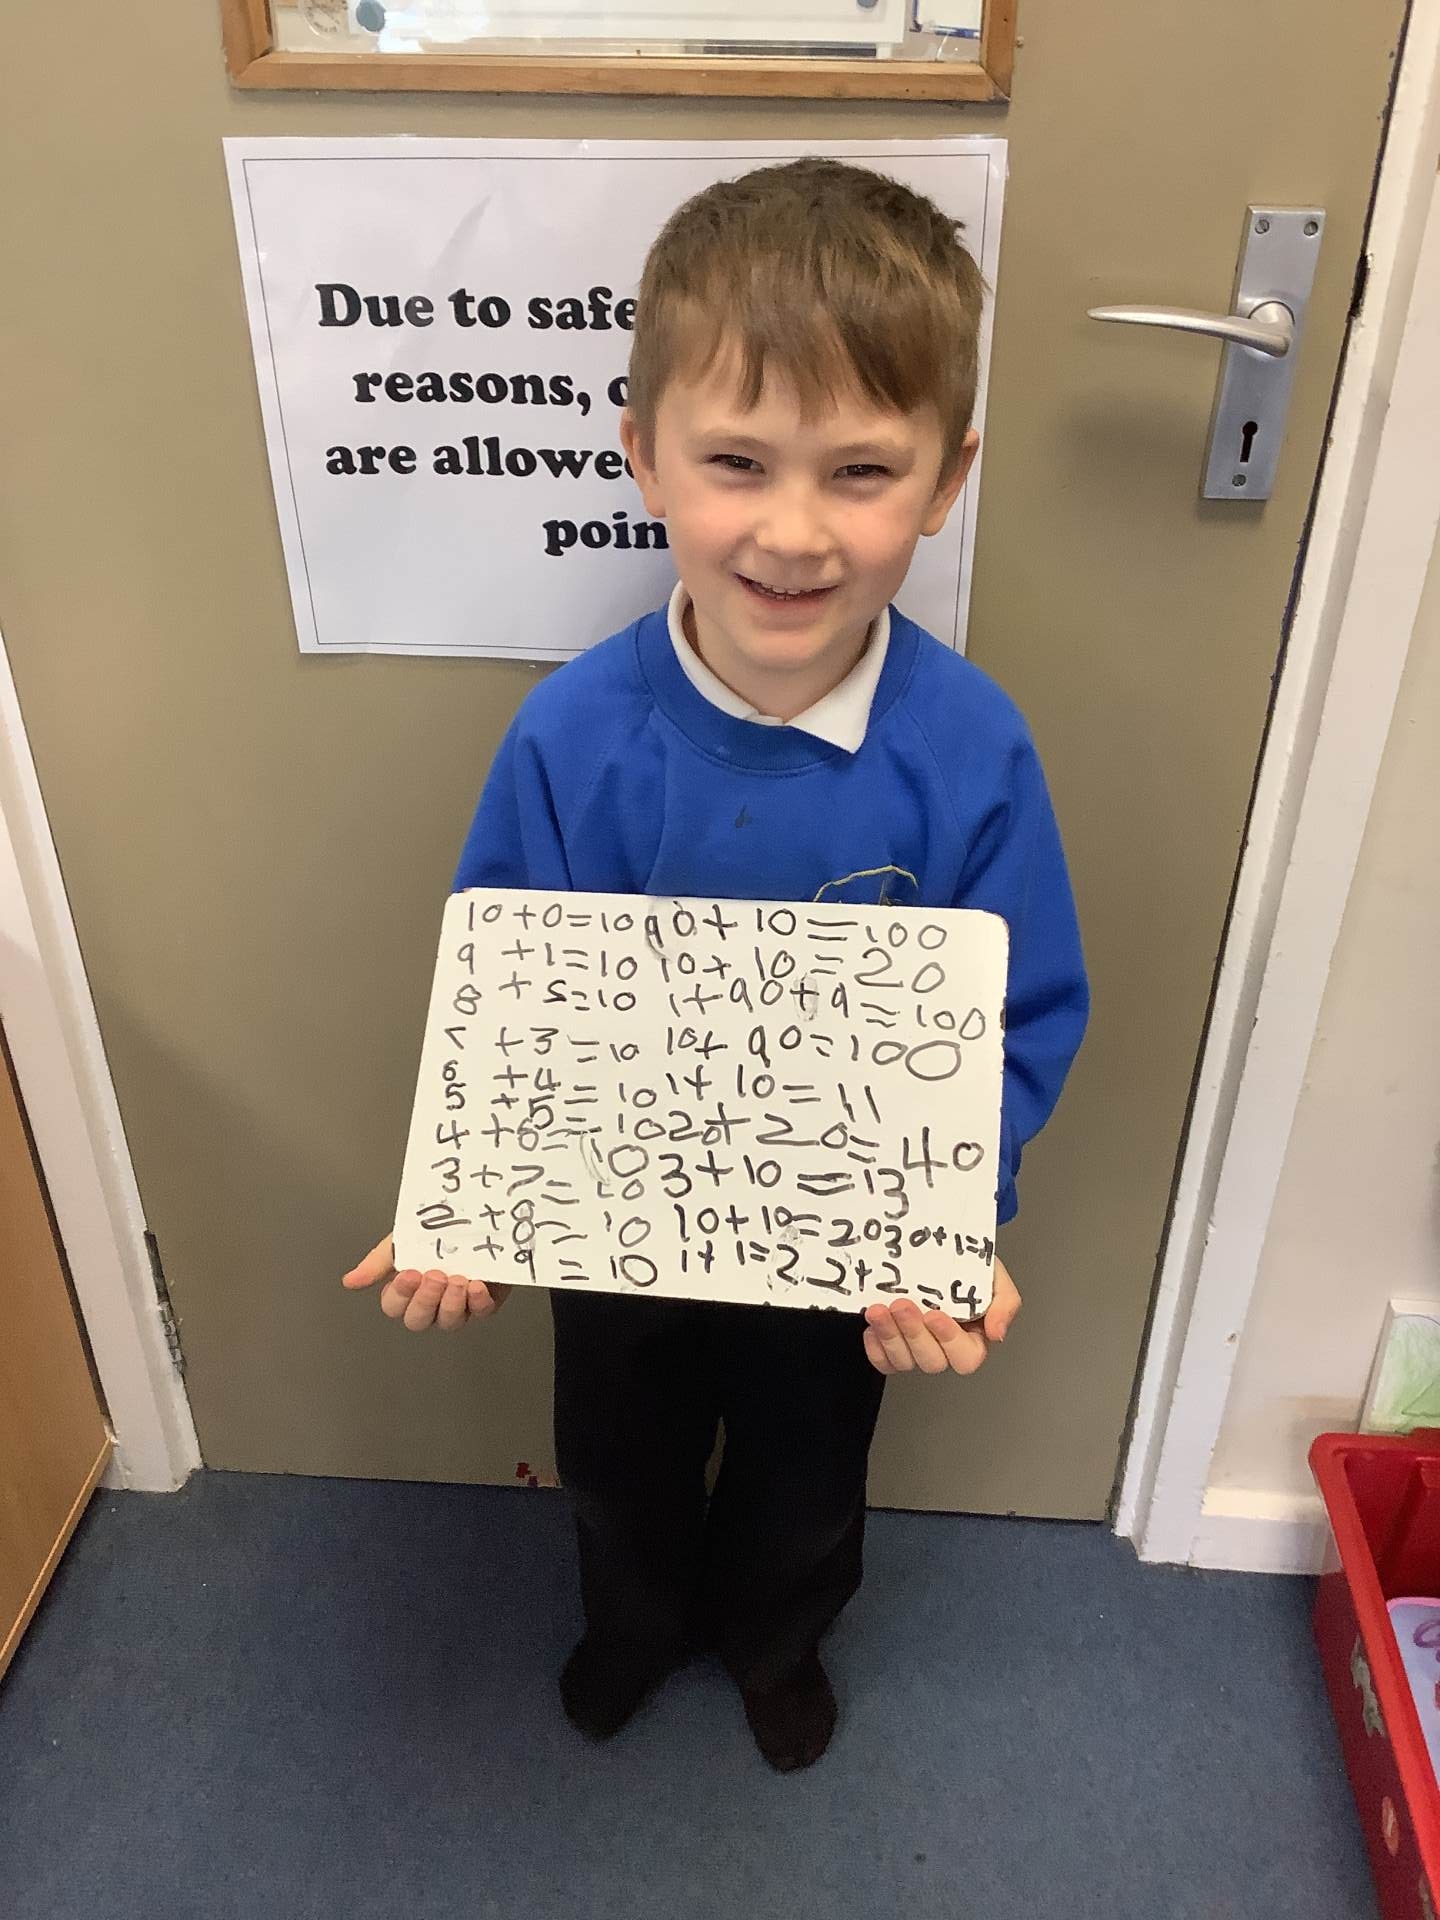 Due to safe
reasons, c
are allowed
poin
10+0=10 90+10=100
9 +1=10 10+10=20
8 +S=10 1+90+9=100
7 +3=10 10+90=100
6 +4=10 1+10=11
5 +5=10 20+20=40
4+6=10 3+10=13
3+7=10 10+10=20 30+1=
2+8=10 1+1=2 2+2=4
1+9=10